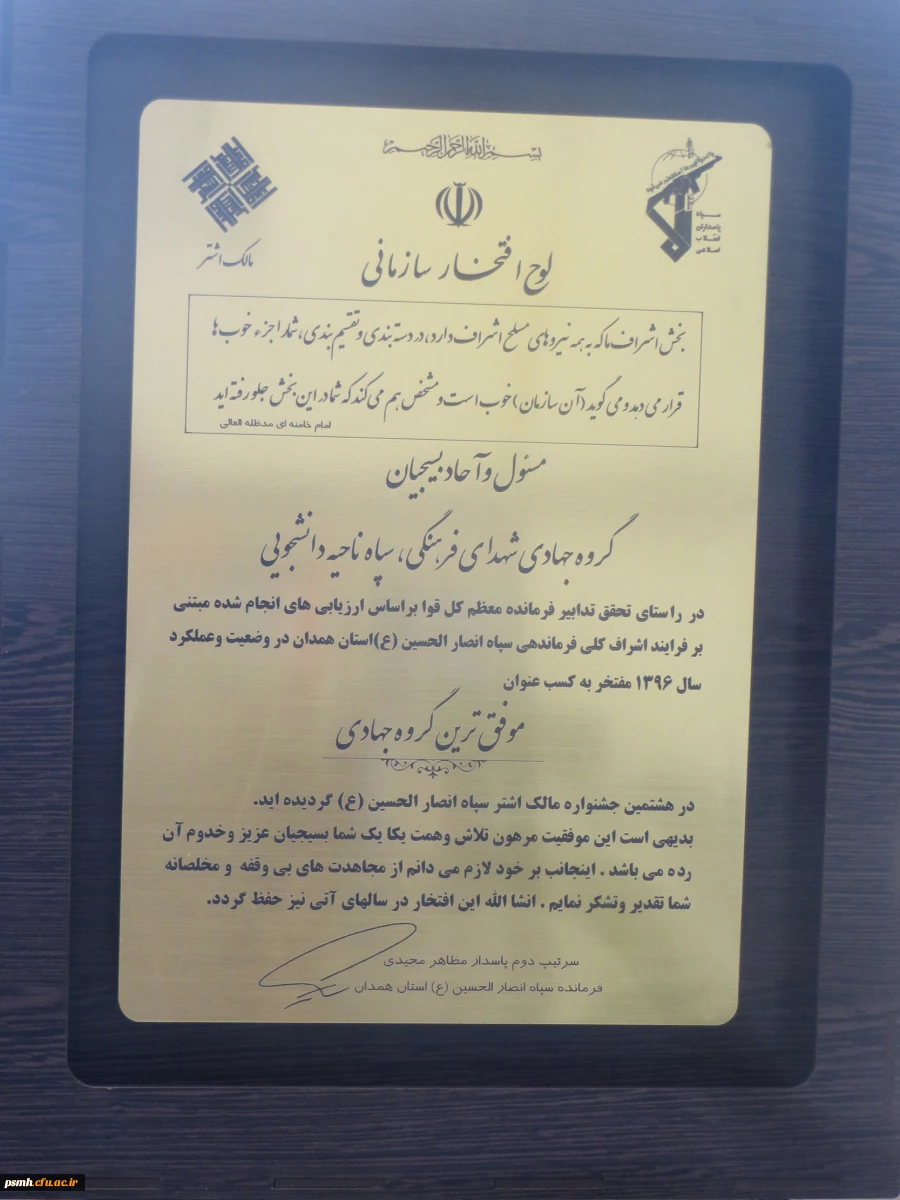 بسم الله الرحمن الرحیم
مالک اشتر
سپاه
پاسداران
انقلاب
اسلامی
لوح افتخار سازمانی
بخش اشراف ما که به همه نیروهای مسلح اشراف دارد، در دسته بندی و تقسیم بندی، شما را جزء خوب ها
قرار می دهد و می گوید (آن سازمان) خوب است و مشخص هم می کند که شما در این بخش جلو رفته اید
امام خامنه ای مدظله العالی
مسئول و آحاد بسیجیان
گروه جهادی شهدای فرهنگی، سپاه ناحیه دانشجویی
در راستای تحقق تدابیر فرمانده معظم کل قوا براساس ارزیابی های انجام شده مبتنی
بر فرایند اشراف کلی فرماندهی سپاه انصار الحسین (ع)استان همدان در وضعیت وعملکرد
سال ۱۳۹۶ مفتخر به کسب عنوان
موفق ترین گروه جهادی
در هشتمین جشنواره مالک اشتر سپاه انصار الحسین (ع) گردیده اید.
بدیهی است این موفقیت مرهون تلاش وهمت یکا یک شما بسیجیان عزیز وخدوم آن
رده می باشد . اینجانب بر خود لازم می دانم از مجاهدت های بی وقفه و مخلصانه
شما تقدیر وتشکر نمایم . انشا الله این افتخار در سالهای آتی نیز حفظ گردد.
سرتیپ دوم پاسدار مظاهر مجیدی
فرمانده سپاه انصار الحسین (ع) استان همدان
psmh.cfu.ac.ir